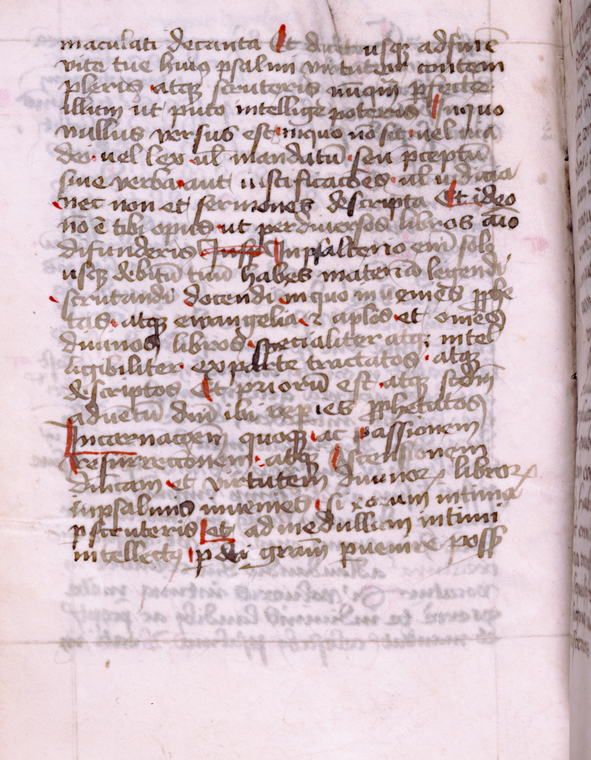 maculati decanta Et dum usq adfinē
vite tue huiꝰ psalmi virtutem contem
pleris atqꝫ scruteris nūqm pfecte
illum ut puto intellige poteris In quo
nullus versus est inquo nō sit uel via
dei uel lex ul mandatū seu pceptū
siue verba aut iustificacōes ul iudicia
nec non et sermones descripta Et ideo
nō ē tibi opus ut perdiuersos libros aīo
difunderis Inpsalterio enī solo
usqꝫ debitū tuū habes materiā legendi
scrutandi docendi inquo inuenies pphe
tas atqꝫ ewangelia ⁊ aplos et omēs
diuinos libros specialiter atqꝫ intel
ligibiliter exparte tractatos atqꝫ
descriptos Et priorū est atqꝫ scdm
aduētū dnī ibi repies pphetatos
Incarnacōem quoqꝫ ac passionem
resurrectionem atqꝫ Ascensionem
et virtutem diuinoꝝ libroꝝ
inpsalmis inuenies si intima
pscruteris Et ad medullam intimi
intellectꝰ p dei gram puenire poss